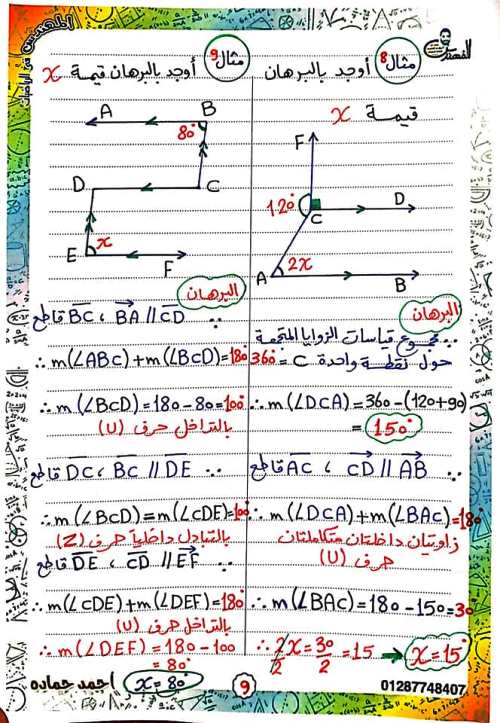 المهندس
في الرياضيات
المهندس
مثال 8 أوجد بالبرهان
قيمة x
F
120°
C
D
A
2x
B
البرهان
∵ مجموع قياسات الزوايا المتجمعة
حول نقطة واحدة C = 360°
∴ m(∠DCA) = 360 - (120+90)
= 150°
∵ CD // AB ، AC قاطع
∴ m(∠DCA) + m(∠BAC) = 180°
زاويتان داخلتان متكاملتان
حرف (U)
∴ m(∠BAC) = 180 - 150 = 30
∴ 2x/2 = 30/2 = 15 → x = 15°
مثال 9 أوجد بالبرهان قيمة x
A
B
80°
D
C
E
x
F
البرهان
∵ BA // CD ، BC قاطع
∴ m(∠ABC) + m(∠BCD) = 180°
∴ m(∠BCD) = 180 - 80 = 100°
بالتداخل حرف (U)
∵ BC // DE ، DC قاطع
∴ m(∠BCD) = m(∠CDE) = 100°
بالتبادل داخلياً حرف (Z)
∵ CD // EF ، DE قاطع
∴ m(∠CDE) + m(∠DEF) = 180°
بالتداخل حرف (U)
∴ m(∠DEF) = 180 - 100
= 80°
x = 80°
احمد حماده
9
01287748407